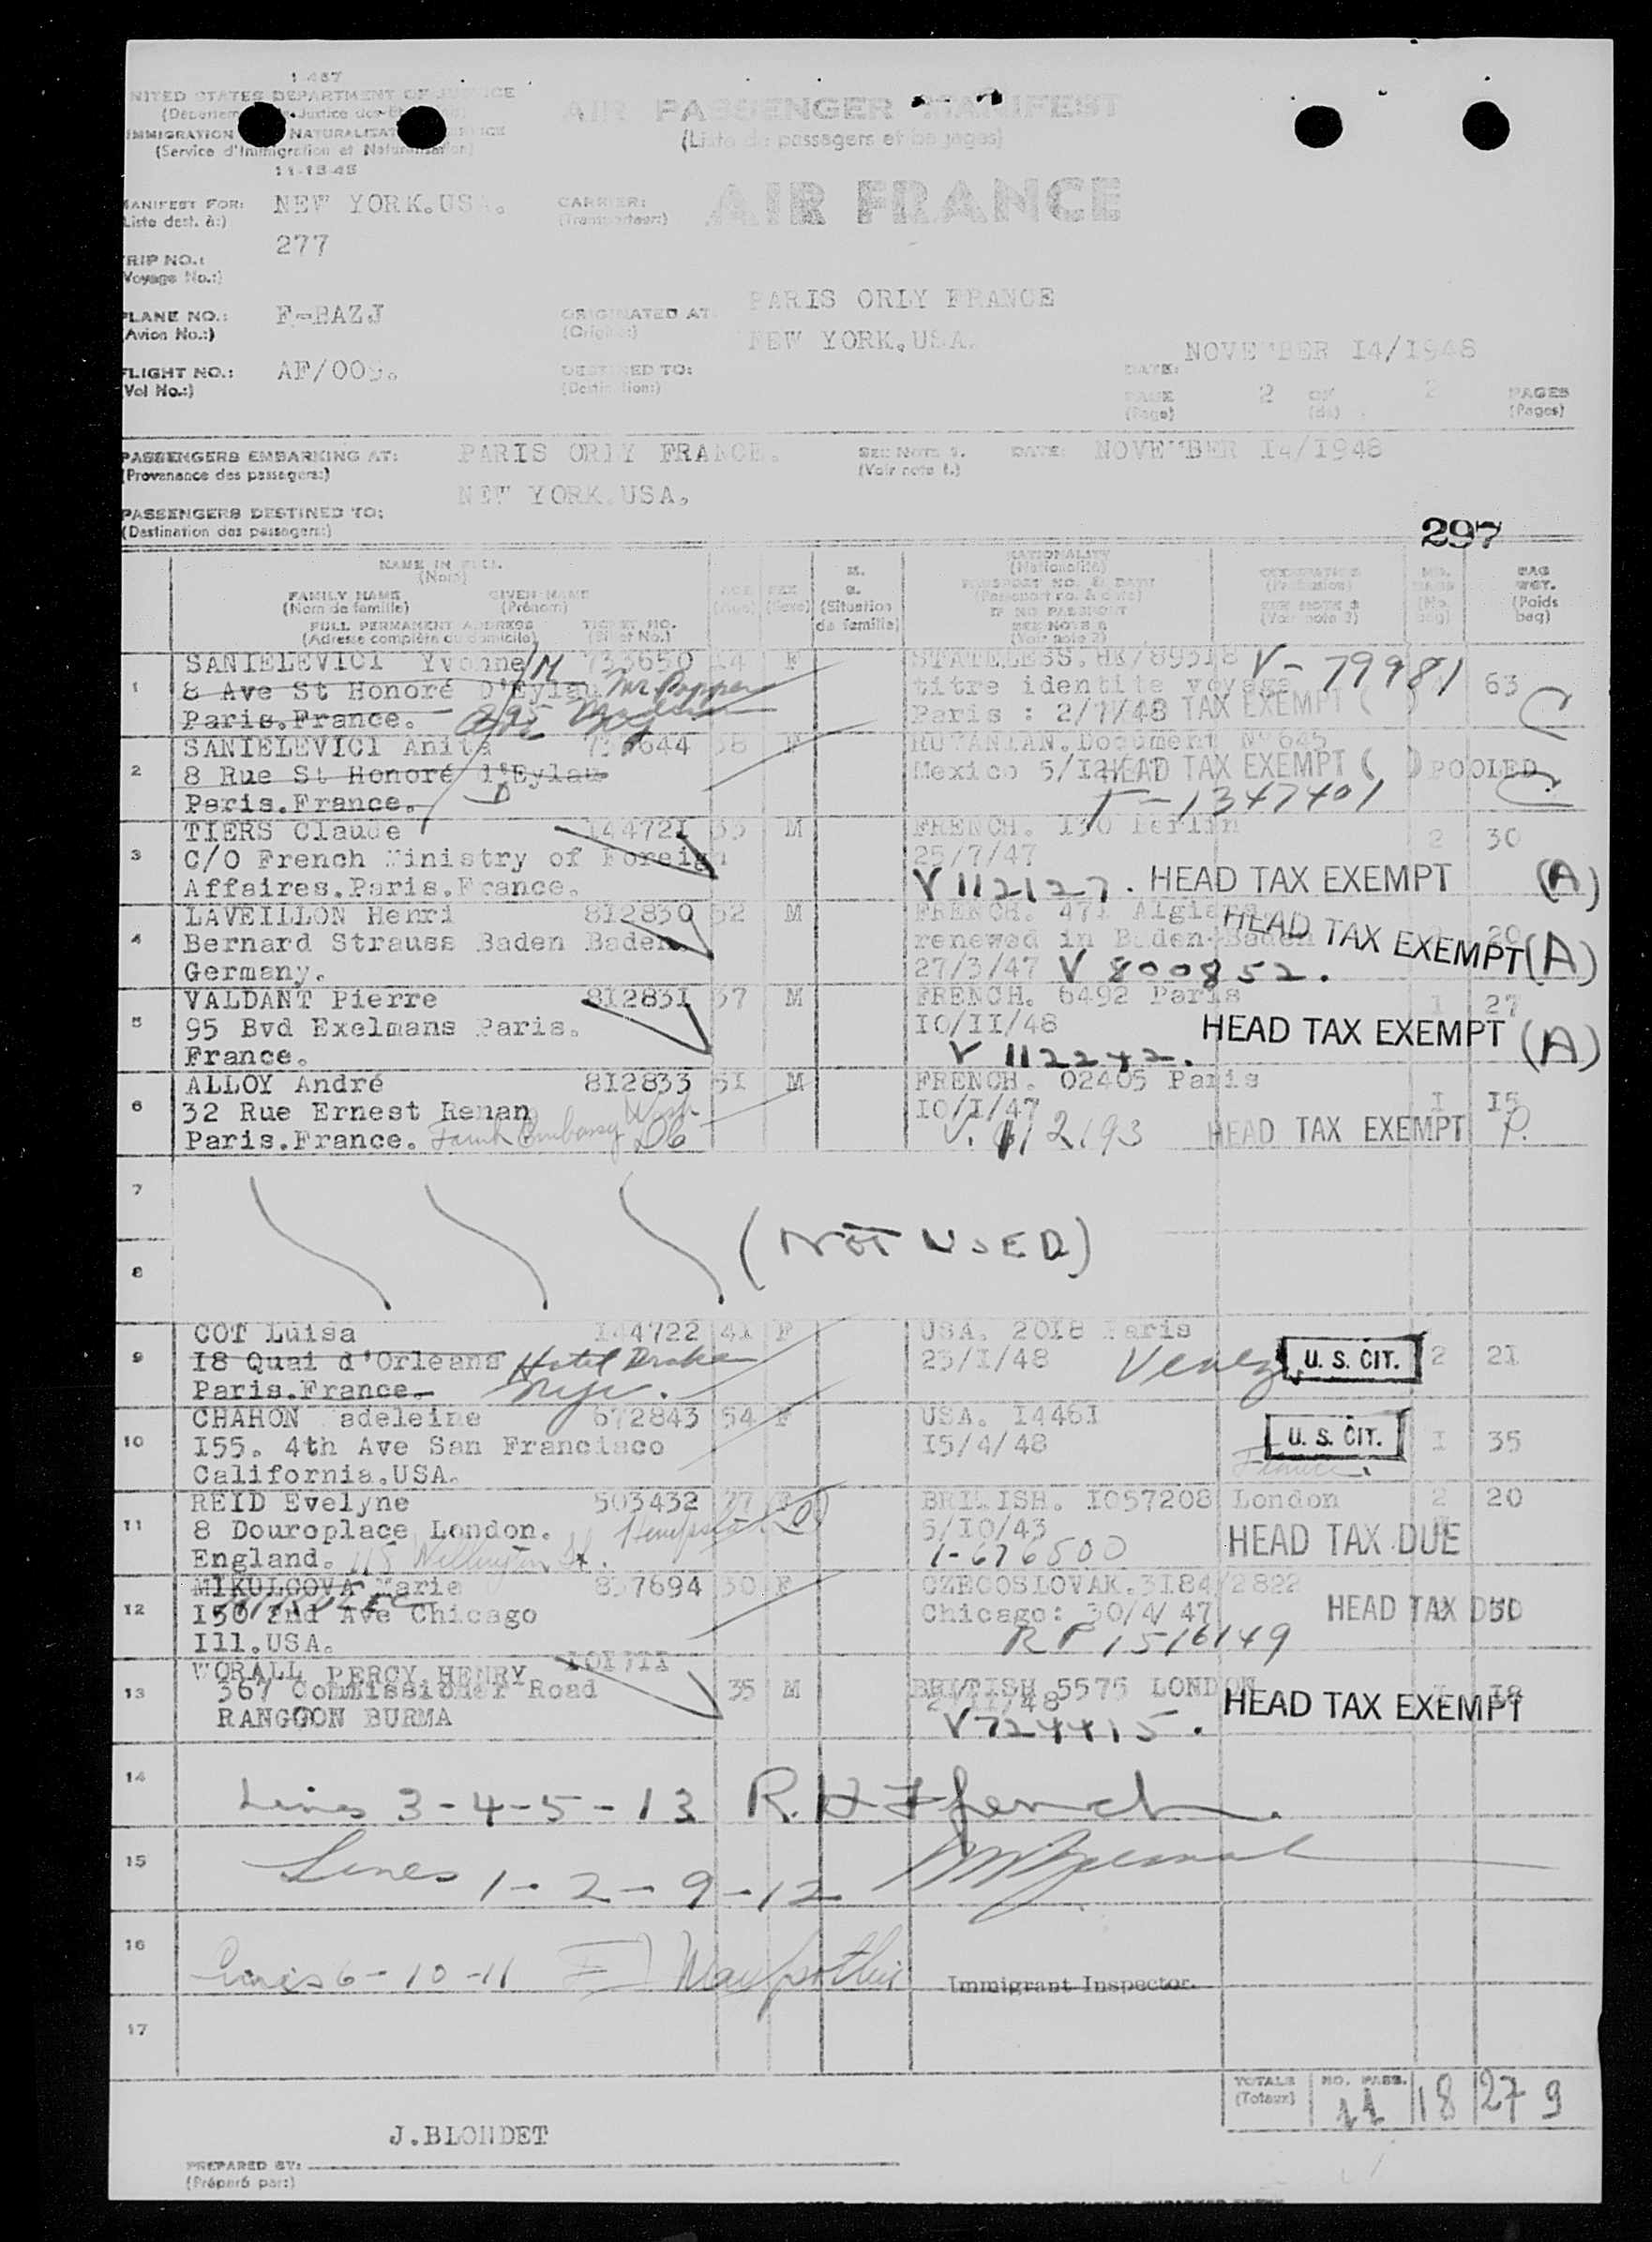 1-467
NITED STATES DEPARTMENT OF JUSTICE
IMMIGRATION NATURALIZAT
(Service d'Immigration et Naturalisation)
11-15-45
AIR PASSENGER MANIFEST
(Liste de passagers et bagages)
MANIFEST FOR: NEW YORK.USA.
Liste dest. à:)
CARRIER: AIR FRANCE
(Transporteur:)
TRIP NO.: 277
Voyage No.:)
PLANE NO.: F-BAZJ
(Avion No.:)
ORIGINATED AT PARIS ORLY FRANCE
(Origine:)
NEW YORK.USA.
FLIGHT NO.: AF/009.
(Vol No.:)
DESTINED TO:
(Destination:)
DATE: NOVEMBER I4/I948
PAGE 2 OF 2 PAGES
(Page) (de) (Pages)
PASSENGERS EMBARKING AT: PARIS ORLY FRANCE.
(Provenance des passagers:)
SEE NOTE 1. DATE: NOVEMBER I4/I948
(Voir note 1.)
NEW YORK.USA.
PASSENGERS DESTINED TO:
(Destination des passagers:)
297
NAME IN FULL
(Nom)
FAMILY NAME GIVEN NAME
(Nom de famille) (Prénom)
FULL PERMANENT ADDRESS TICKET NO.
(Adresse complète du domicile) (Billet No.)
AGE SEX
(Age) (Sexe)
M.
S.
(Situation
de famille)
NATIONALITY
(Nationalité)
PASSPORT NO. & DATE
(Passeport no. & date)
IF NO PASSPORT
SEE NOTE
(Voir note 2)
OCCUPATION
(Profession)
SEE NOTE 3
(Voir note 3)
NO.
BAGS
(No.
bag)
BAG
WGT.
(Poids
bag)
1 SANIELEVICI Yvonne/M 733650 14 F STATELESS. V-79981
8 Ave St Honoré D'Eylau Mr. Popper titre identite voyage 63
Paris.France. Paris : 2/7/48 TAX EXEMPT ( ) C
2 SANIELEVICI Anita 38 F Document Nº 645
8 Rue St Honoré d'Eylau Mexico HEAD TAX EXEMPT ( ) POOLED
Paris.France. T-1347401
3 TIERS Claude 144721 35 M FRENCH. 130 Berlin 2 30
C/O French Ministry of Foreign 25/7/47
Affaires.Paris.France. V 112127. HEAD TAX EXEMPT (A)
4 LAVEILLON Henri 812830 52 M FRENCH. 471 HEAD TAX EXEMPT (A)
Bernard Strauss Baden Baden. renewed in Baden-Baden 20
Germany. 27/3/47 V 800852.
5 VALDANT Pierre 812831 37 M FRENCH. 6492 Paris 1 27
95 Bvd Exelmans Paris. I0/II/48 HEAD TAX EXEMPT (A)
France. V 112242.
6 ALLOY André 812833 51 M FRENCH. 02405 Paris
32 Rue Ernest Renan I0/I/47 I I5
Paris.France. Embassy Wash DC V. 112193 HEAD TAX EXEMPT P.
7
8 (NOT USED)
9 COT Luisa 144722 41 F USA. 20I8 Paris
I8 Quai d'Orleans Hotel Drake 23/I/48 Venez. U. S. CIT. 2 21
Paris.France. Nyc.
10 CHAHON Madeleine 672843 54 F USA. I446I
I55. 4th Ave San Francisco I5/4/48 U. S. CIT. I 35
California.USA.
11 REID Evelyne 503432 F BRITISH. I057208 London 2 20
8 Douroplace London. 5/I0/43 HEAD TAX DUE
England. 115 Wellington St. 1-676500
12 MIKULCOVA Marie 857694 30 F CZECOSLOVAK.3I84/2822
I50 2nd Ave Chicago Chicago: 30/4/ 47 HEAD TAX
Ill.USA. RP 1516149
13 WORALL PERCY HENRY 35 M BRITISH 5575 LONDON
367 Commissioner Road HEAD TAX EXEMPT
RANGOON BURMA V724415.
14 Lines 3-4-5-13
15 Lines 1-2-9-12
16 Lines 6-10-11 Immigrant Inspector.
17
TOTALS NO. PASS.
(Totaux) 11 18 279
J.BLONDET
PREPARED BY:
(Préparé par:)